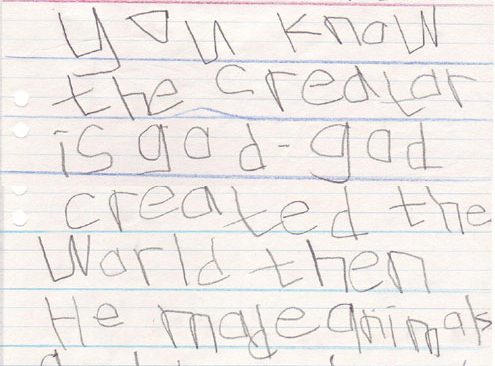 you know
the creator
is god-god
created the
World then
He made animals